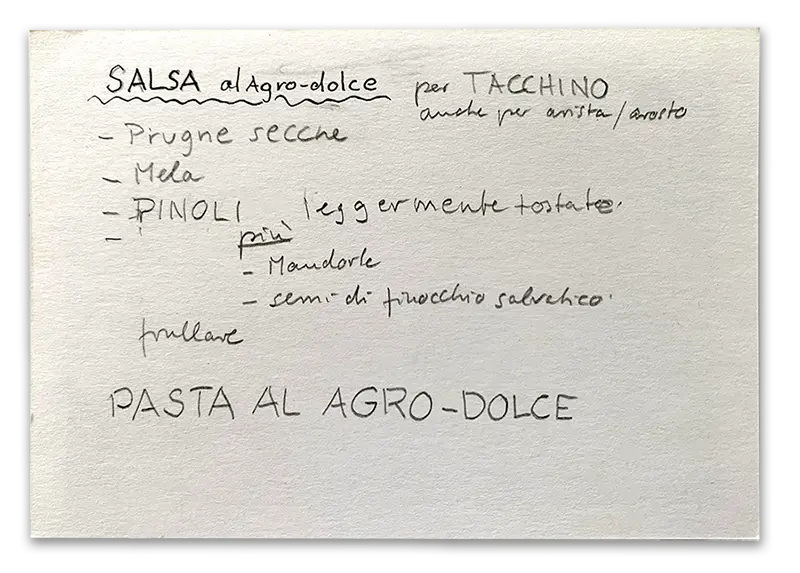 SALSA al Agro-dolce per TACCHINO
anche per arista/arosto
- Prugne secche
- Mela
- PINOLI leggermente tostate.
-
più
- Mandorle
- semi di finocchio salvatico.
frullare
PASTA AL AGRO-DOLCE